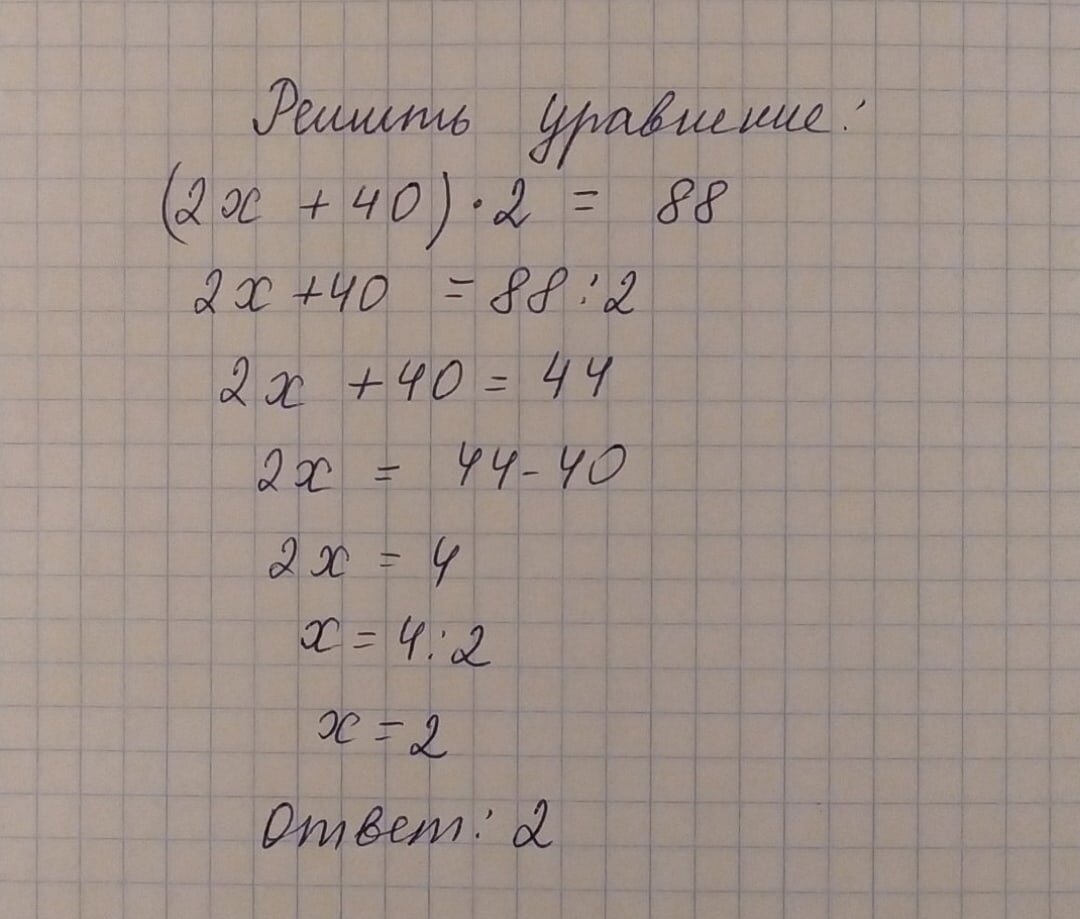 Решить уравнение:
(2x + 40) · 2 = 88
2x + 40 = 88 : 2
2x + 40 = 44
2x = 44 - 40
2x = 4
x = 4 : 2
x = 2
Ответ: 2